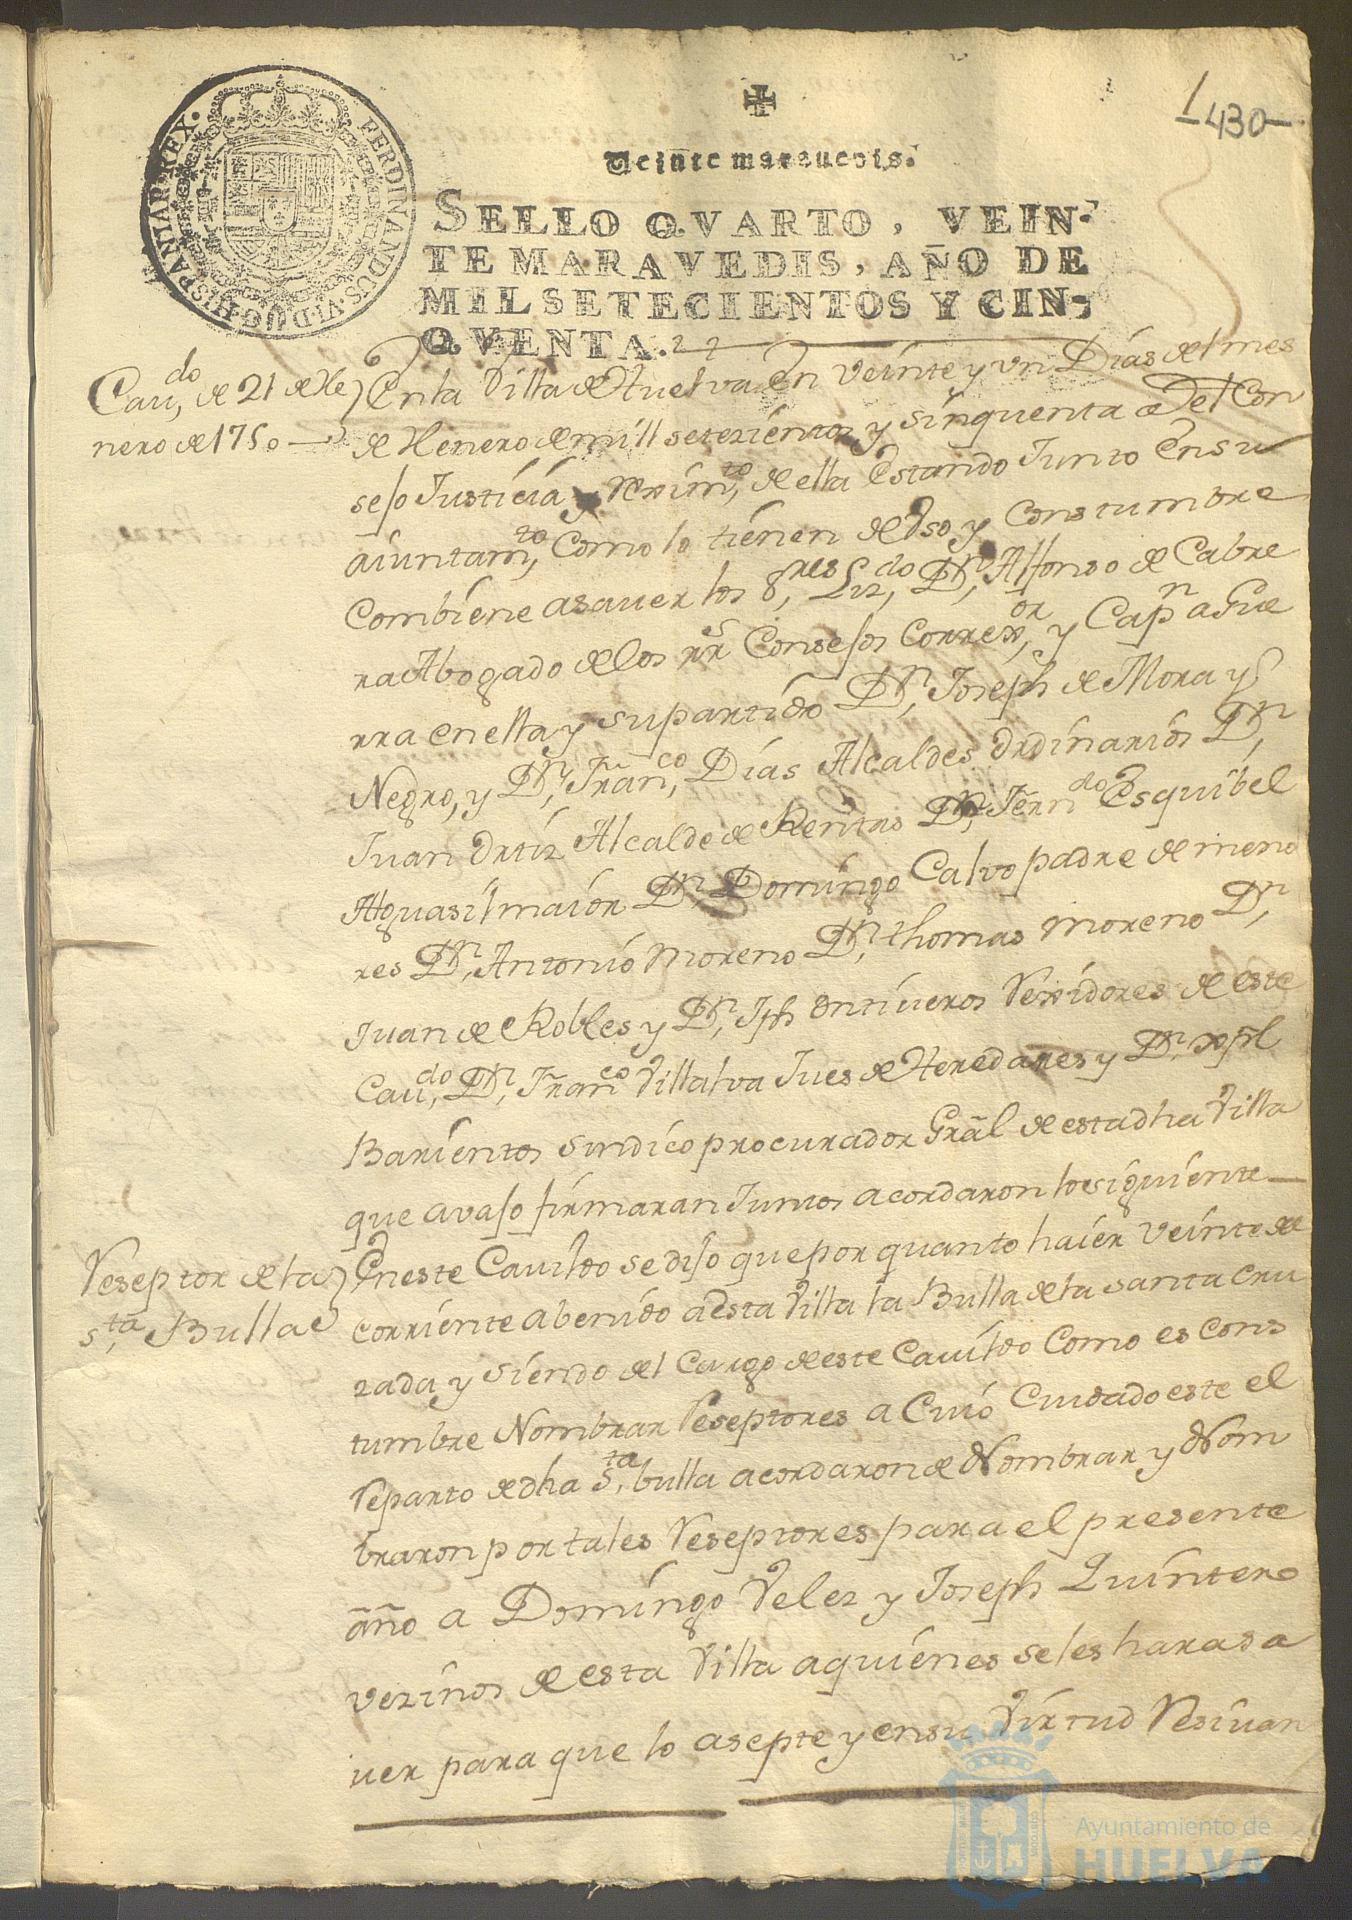 1 430
Veinte maravedis.
SELLO QVARTO, VEIN-
TE MARAVEDIS, AÑO DE
MIL SETECIENTOS Y CIN-
QVENTA.
FERDINANDUS·VI·D·G·HISPANIAR·REX·
Cau,do de 21 de He
nero de 1750
En la Villa de Huelva en veinte y un Dias del mes
de Henero de mill setezientos y sinquenta a Del Con
sejo Justicia y Reximto, de ella Estando Junto en su
aiuntamto, como lo tienen de Vso y Constumbre
Combiene asauer los S,res Liz,do Dn, Alfonso de Cabre
ra Abogado de los RRs Consejos Correxor, y Capn a Gue
rra en ella y su partido Dn, Joseph de Mora y
Negro, y Dn, Franco, Dias Alcaldes Ordinarios Dn,
Juan Ortiz Alcalde de Rentas Dn, Ferndo Esquibel
Alguasil maior Dn, Domingo Calvo padre de meno
res Dn, Antonio Moreno Dn, thomas moreno Dn,
Juan de Robles y Dn, Jph Ontiueros Rexidores de este
Cau,do Dn, Franco Villalva Jues de Heredades y Dn, xpl
Barientos sindico procurador Gral de esta dha Villa
que avajo firmaran Juntos acordaron lo siguiente
Reseptor de la
s,ta Bulla
En este Cauildo se dijo que por quanto haier veinte de
corriente a benido a esta Villa la Bulla de la santa Cru
zada y siendo del Cargo de este Cauildo Como es cons
tumbre Nombrar Reseptores a Cuio Cuidado este el
Reparto de dha S,ta bulla acordaron de Nombrar y Nom
braron por tales Reseptores para el presente
año a Domingo Velez y Joseph Quintero
vezinos de esta Villa a quienes se les hara sa
uer para que lo asepte y en su Virtud Resiuan
Ayuntamiento de
HUELVA